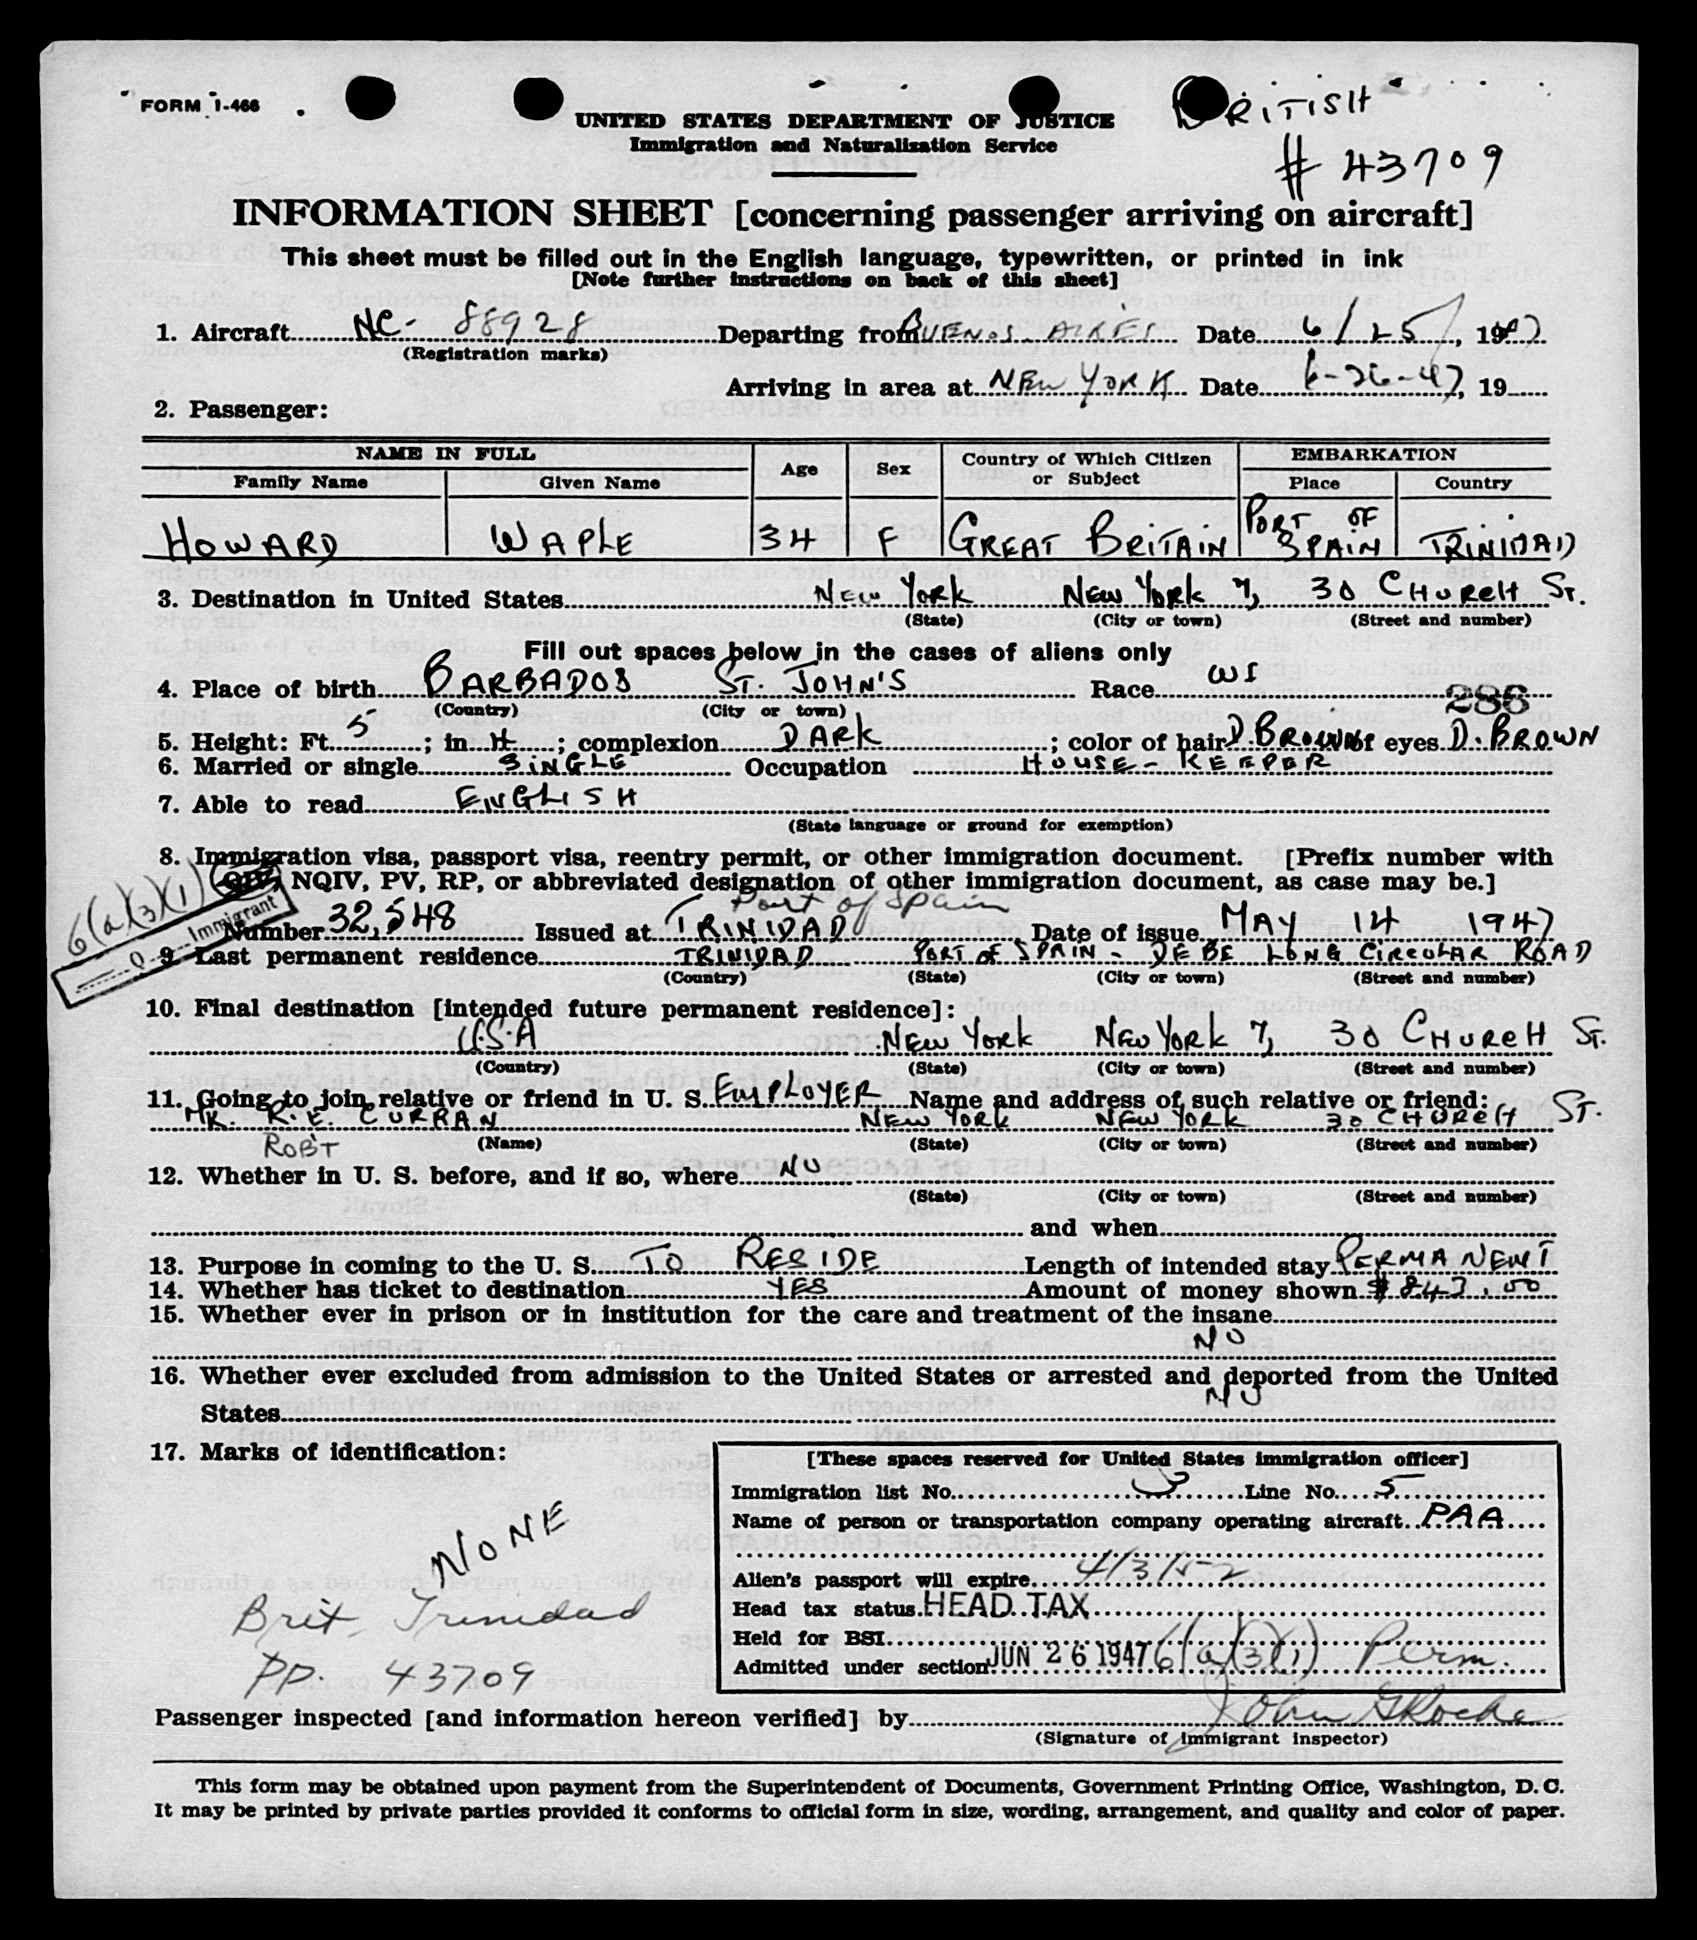 FORM I-466
BRITISH
# 43709
UNITED STATES DEPARTMENT OF JUSTICE
Immigration and Naturalization Service
INFORMATION SHEET [concerning passenger arriving on aircraft]
This sheet must be filled out in the English language, typewritten, or printed in ink
[Note further instructions on back of this sheet]
1. Aircraft NC- 88928 Departing from BUENOS AIRES Date 6/25/, 1947
(Registration marks)
Arriving in area at NEW YORK Date 6-26-47, 19
2. Passenger:
NAME IN FULL Age Sex Country of Which Citizen or Subject EMBARKATION
Family Name Given Name Place Country
HOWARD WAPLE 34 F GREAT BRITAIN PORT OF SPAIN TRINIDAD
3. Destination in United States NEW YORK NEW YORK 7, 30 CHURCH ST.
(State) (City or town) (Street and number)
Fill out spaces below in the cases of aliens only
4. Place of birth BARBADOS ST. JOHN'S Race WI
(Country) (City or town) 286
5. Height: Ft. 5; in. 4; complexion DARK; color of hair D. BROWN of eyes D. BROWN
6. Married or single SINGLE Occupation HOUSE-KEEPER
7. Able to read ENGLISH
(State language or ground for exemption)
8. Immigration visa, passport visa, reentry permit, or other immigration document. [Prefix number with
QIV, NQIV, PV, RP, or abbreviated designation of other immigration document, as case may be.]
6(a)(3)(1)
Immigrant
Port of Spain
Number 32,548 Issued at TRINIDAD Date of issue MAY 14 1947
9. Last permanent residence TRINIDAD PORT OF SPAIN - DEBE LONG CIRCULAR ROAD
(Country) (State) (City or town) (Street and number)
10. Final destination [intended future permanent residence]:
U.S.A NEW YORK NEW YORK 7, 30 CHURCH ST.
(Country) (State) (City or town) (Street and number)
11. Going to join relative or friend in U. S. EMPLOYER Name and address of such relative or friend:
MR. R. E. CURRAN NEW YORK NEW YORK 30 CHURCH ST.
ROB'T (Name) (State) (City or town) (Street and number)
12. Whether in U. S. before, and if so, where NO
(State) (City or town) (Street and number)
and when
13. Purpose in coming to the U. S. TO RESIDE Length of intended stay PERMANENT
14. Whether has ticket to destination YES Amount of money shown $843.00
15. Whether ever in prison or in institution for the care and treatment of the insane
NO
16. Whether ever excluded from admission to the United States or arrested and deported from the United
States NO
17. Marks of identification:
NONE
Brit. Trinidad
PP. 43709
[These spaces reserved for United States immigration officer]
Immigration list No. Line No. 5
Name of person or transportation company operating aircraft PAA
Alien's passport will expire 4/3/52
Head tax status HEAD TAX
Held for BSI
Admitted under section JUN 26 1947 6(a)(3)(1) Perm.
Passenger inspected [and information hereon verified] by John G Roche
(Signature of immigrant inspector)
This form may be obtained upon payment from the Superintendent of Documents, Government Printing Office, Washington, D. C.
It may be printed by private parties provided it conforms to official form in size, wording, arrangement, and quality and color of paper.